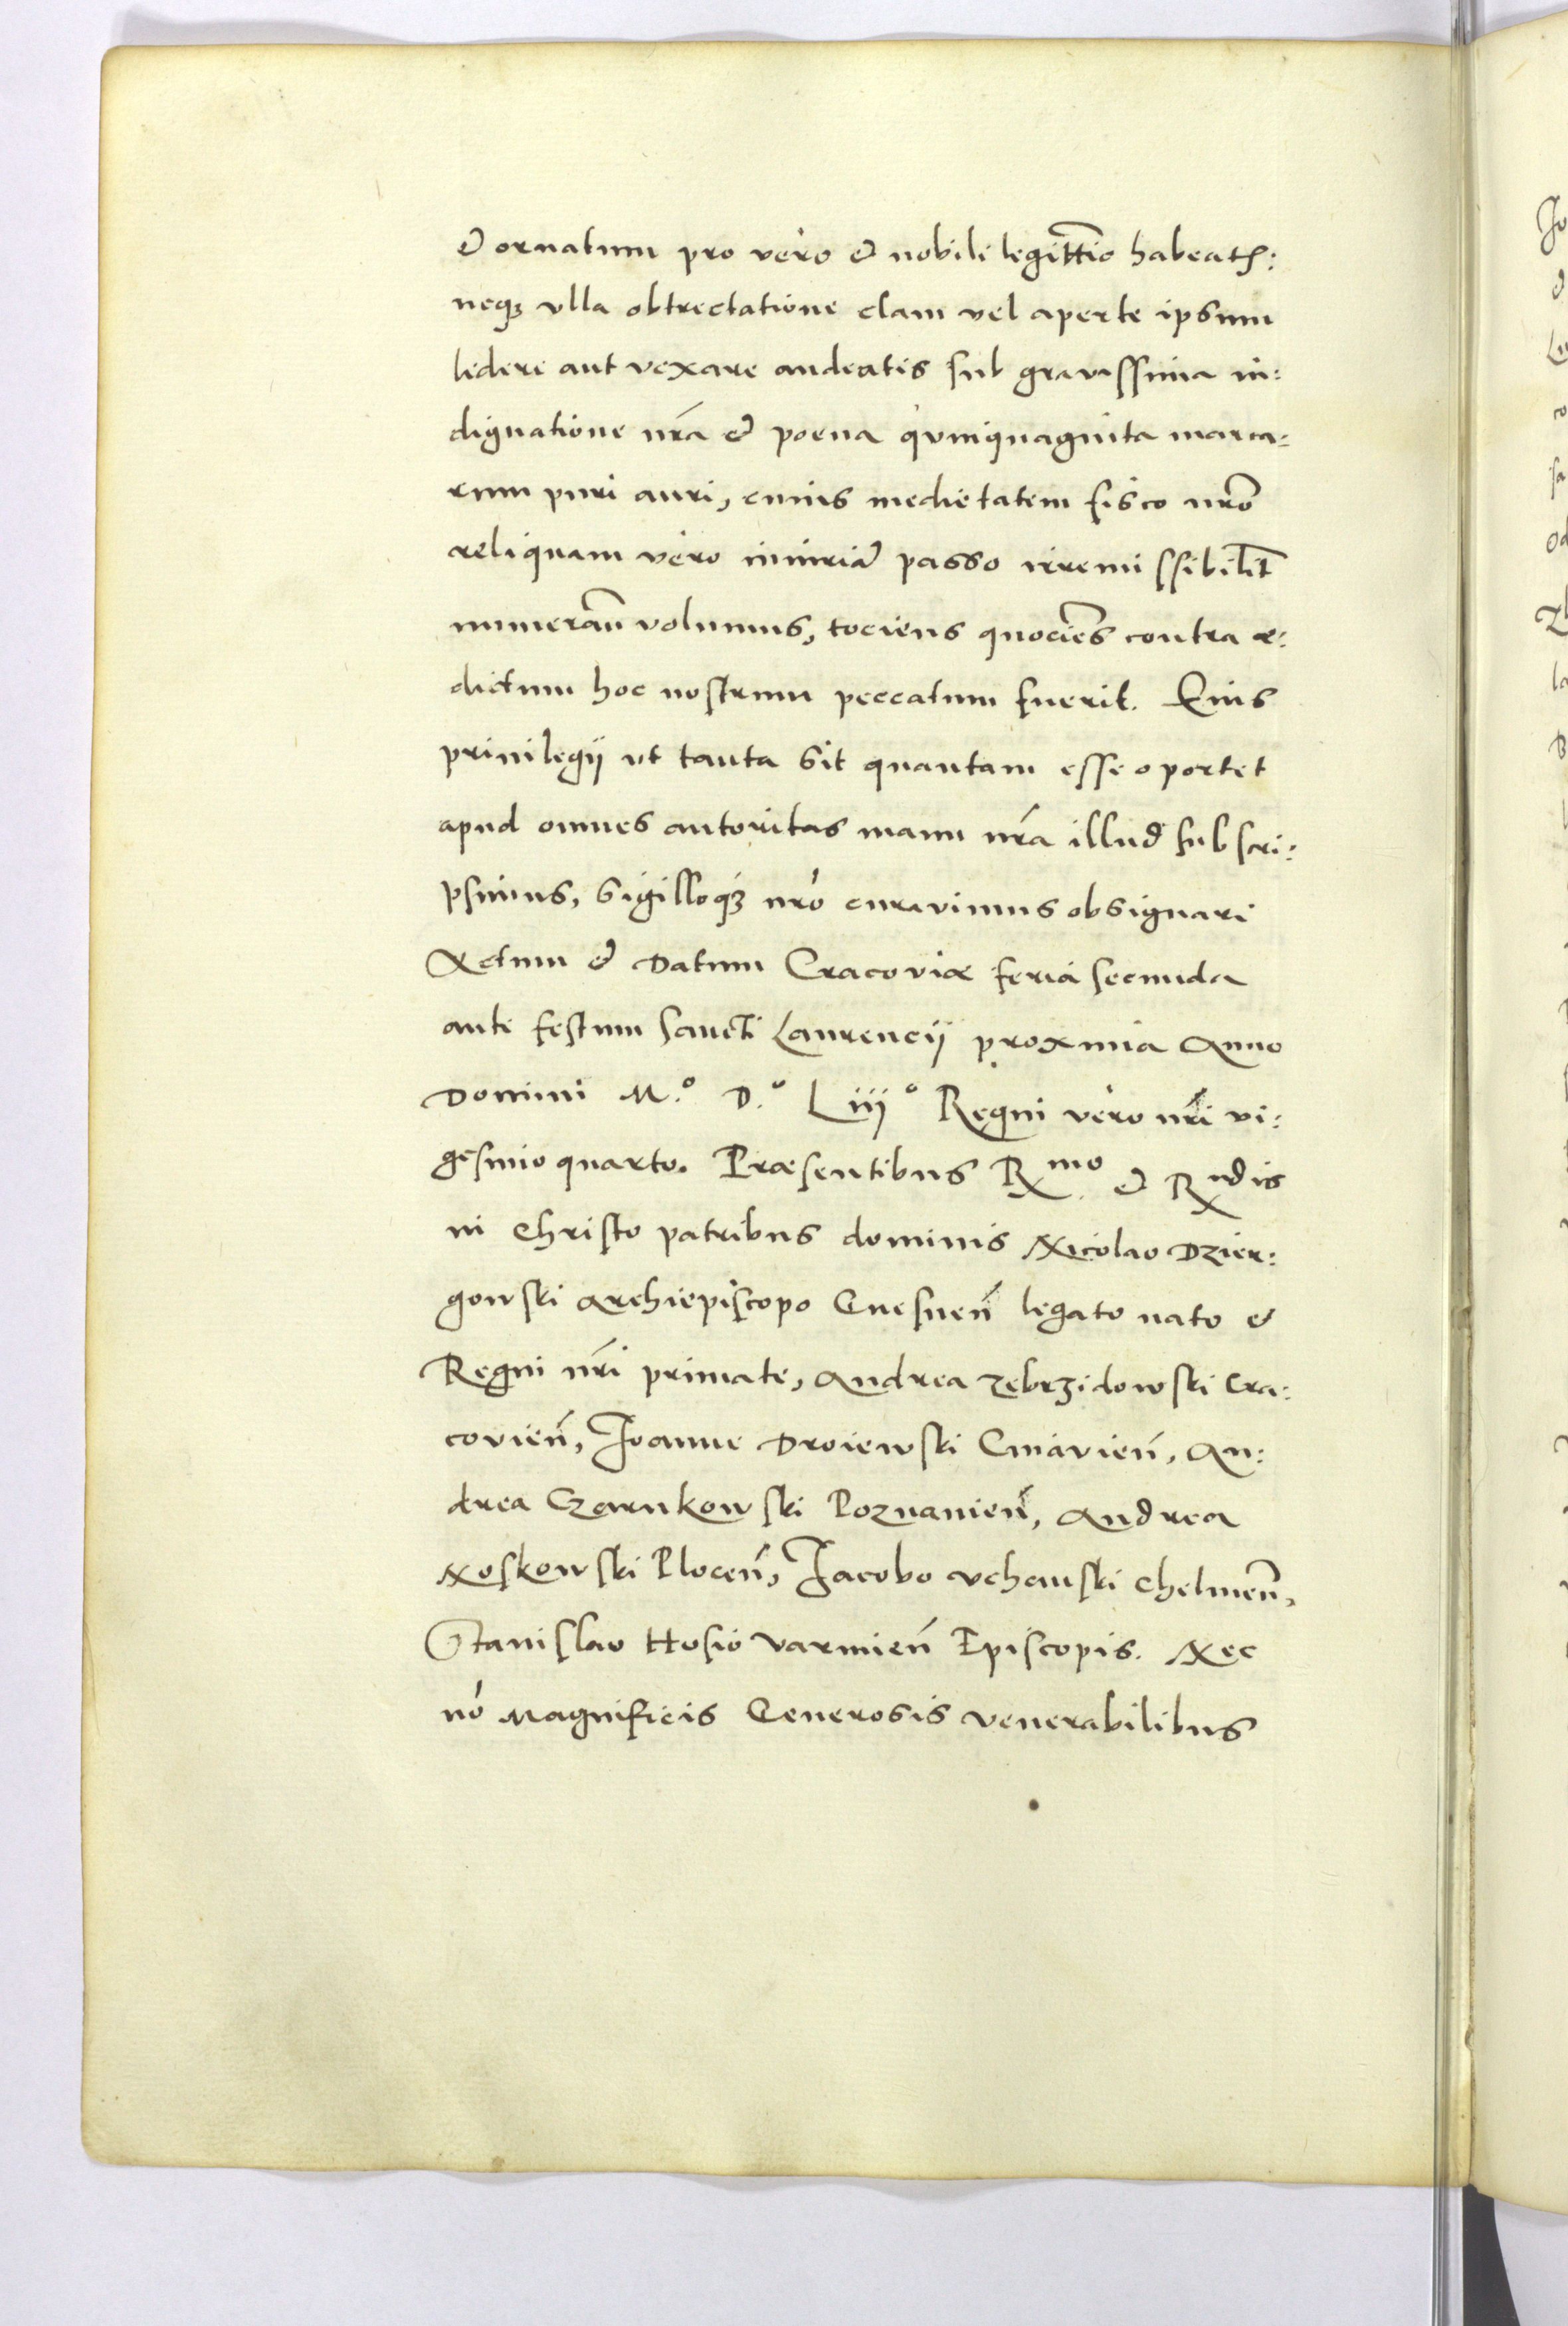 & ornatum pro vero & nobili legittīo habeatꝭ:
neqꝫ vlla obtrectatione clam vel aperte ipsum
ledere aut vexare audeatis sub gravissima in:
dignatione nr̃a & poena qvinquaginta marca:
rum puri auri, cuius medietatem fisco nr̃o
reliquam vero iniuriā passo irremissibilit̃
numerañ volumus, tociens quociẽs contra æ:
dictum hoc nostrum peccatum fuerit. Eius
priuilegij vt tanta sit quantam esse oportet
apud omnes autoritas manu nr̃a illud subscri:
psimus, sigilloqꝫ nr̃o curavimus obsignari
Actum & Datum Cracoviæ feria secunda
ante festum Sancti Laurencij proxima Anno
Domini M.º D.º Liijº Regni vero nr̃i vi:
gesimo quarto. Præsentibus Rmo & Rndis
in Christo patribus dominis Nicolao Dzier:
gowski Archiepiscopo Gnesneñ legato nato &
Regni nr̃i primate, Andrea Zebrzidowski Cra:
covieñ, Joanne Droiewski Cuiavieñ, An:
drea Czarnkowski Poznanieñ, Andrea
Noskowski Ploceñ, Jacobo Vchanski Chelmeñ,
Stanislao Hosio Varmieñ Episcopis. Nec
nõ Magnificis Generosis Venerabilibus